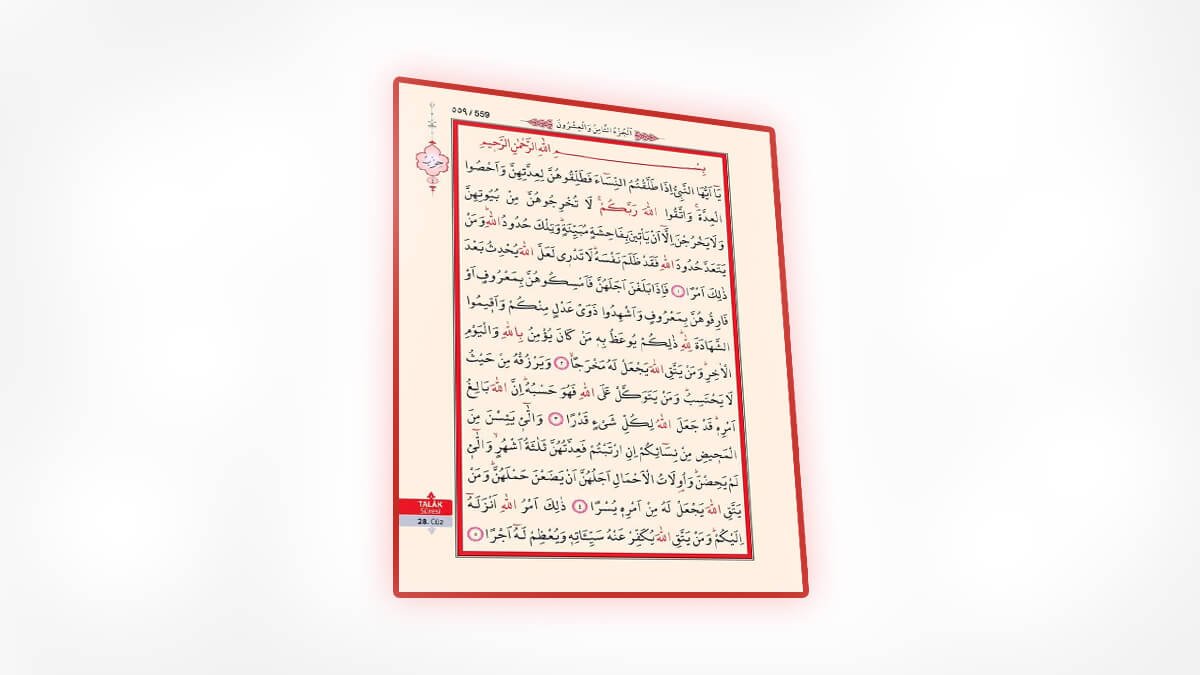 ٥٥٩ / 559
اَلْجُزْءُ الثَّامِنُ وَالْعِشْرُونَ
حزب
بِسْمِ اللّٰهِ الرَّحْمٰنِ الرَّحٖيمِ
يَٓا اَيُّهَا النَّبِيُّ اِذَا طَلَّقْتُمُ النِّسَٓاءَ فَطَلِّقُوهُنَّ لِعِدَّتِهِنَّ وَاَحْصُوا
الْعِدَّةَۚ وَاتَّقُوا اللّٰهَ رَبَّكُمْۚ لَا تُخْرِجُوهُنَّ مِنْ بُيُوتِهِنَّ
وَلَا يَخْرُجْنَ اِلَّٓا اَنْ يَأْتٖينَ بِفَاحِشَةٍ مُبَيِّنَةٍۜ وَتِلْكَ حُدُودُ اللّٰهِۜ وَمَنْ
يَتَعَدَّ حُدُودَ اللّٰهِ فَقَدْ ظَلَمَ نَفْسَهُۜ لَا تَدْرٖي لَعَلَّ اللّٰهَ يُحْدِثُ بَعْدَ
ذٰلِكَ اَمْرًا ١ فَاِذَا بَلَغْنَ اَجَلَهُنَّ فَاَمْسِكُوهُنَّ بِمَعْرُوفٍ اَوْ
فَارِقُوهُنَّ بِمَعْرُوفٍ وَاَشْهِدُوا ذَوَيْ عَدْلٍ مِنْكُمْ وَاَقٖيمُوا
الشَّهَادَةَ لِلّٰهِۜ ذٰلِكُمْ يُوعَظُ بِهٖ مَنْ كَانَ يُؤْمِنُ بِاللّٰهِ وَالْيَوْمِ
الْاٰخِرِۜ وَمَنْ يَتَّقِ اللّٰهَ يَجْعَلْ لَهُ مَخْرَجًاۙ ٢ وَيَرْزُقْهُ مِنْ حَيْثُ
لَا يَحْتَسِبُۜ وَمَنْ يَتَوَكَّلْ عَلَى اللّٰهِ فَهُوَ حَسْبُهُۜ اِنَّ اللّٰهَ بَالِغُ
اَمْرِهٖۜ قَدْ جَعَلَ اللّٰهُ لِكُلِّ شَيْءٍ قَدْرًا ٣ وَالّٰٓـٖٔي يَئِسْنَ مِنَ
الْمَحٖيضِ مِنْ نِسَٓائِكُمْ اِنِ ارْتَبْتُمْ فَعِدَّتُهُنَّ ثَلٰثَةُ اَشْهُرٍۙ وَالّٰٓـٖٔي
لَمْ يَحِضْنَۜ وَاُو۬لَاتُ الْاَحْمَالِ اَجَلُهُنَّ اَنْ يَضَعْنَ حَمْلَهُنَّۜ وَمَنْ
يَتَّقِ اللّٰهَ يَجْعَلْ لَهُ مِنْ اَمْرِهٖ يُسْرًا ٤ ذٰلِكَ اَمْرُ اللّٰهِ اَنْزَلَهُٓ
اِلَيْكُمْۜ وَمَنْ يَتَّقِ اللّٰهَ يُكَفِّرْ عَنْهُ سَيِّـَٔاتِهٖ وَيُعْظِمْ لَهُٓ اَجْرًا ٥
TALÂK
Sûresi
28. Cüz